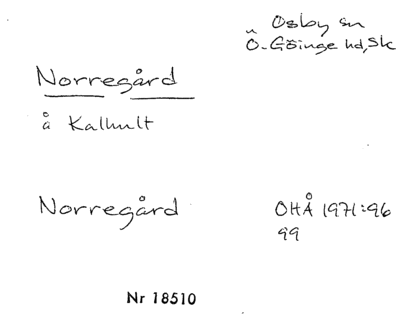 Osby sn
Ö. Göinge hd, Sk
Norregård
å Kalhult
Norregård
OHÅ 1971:96
99
Nr 18510